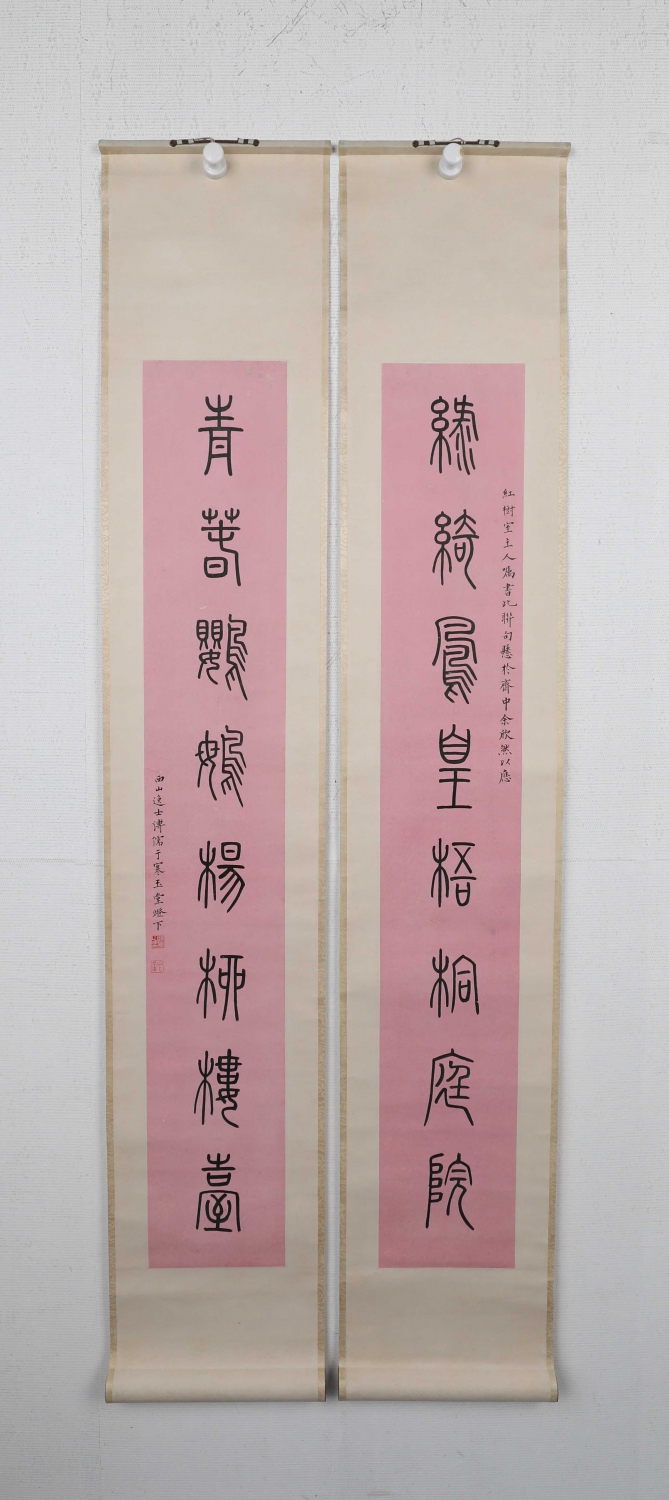 紅樹室主人囑書此聯句懸於齋中余欣然以應
綠綺鳳皇梧桐庭院
青春鸚䳇楊柳樓臺
西山逸士溥儒于寒玉堂燈下